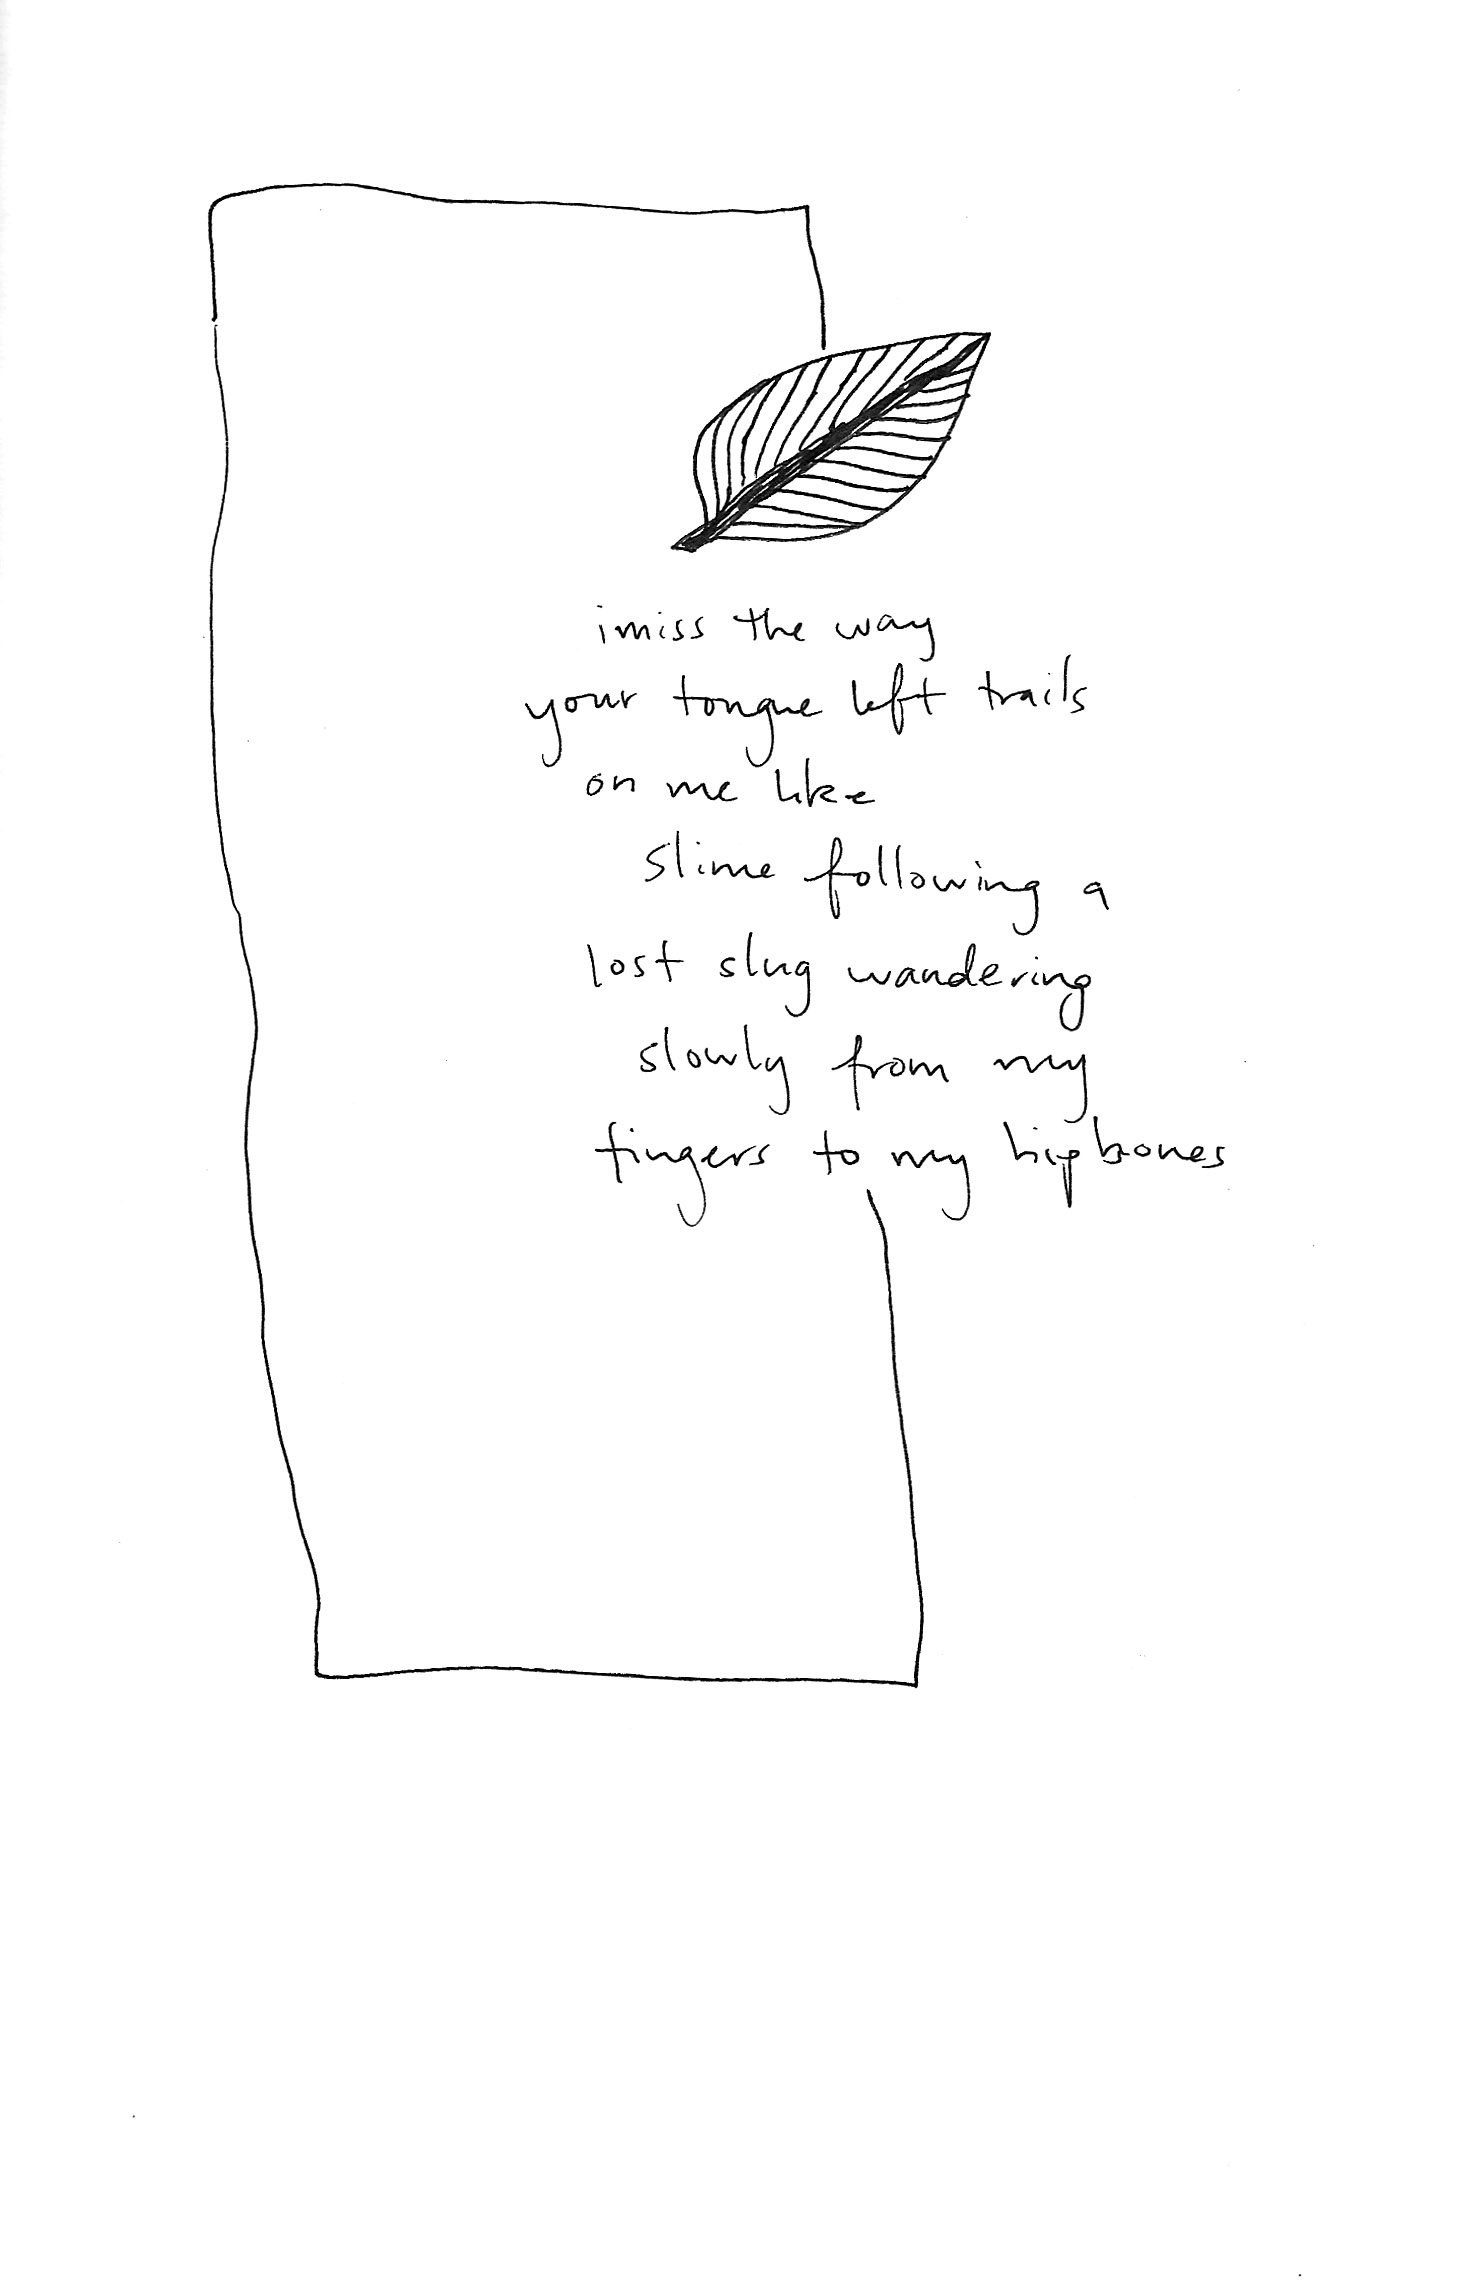 i miss the way
your tongue left trails
on me like
slime following a
lost slug wandering
slowly from my
fingers to my hipbones